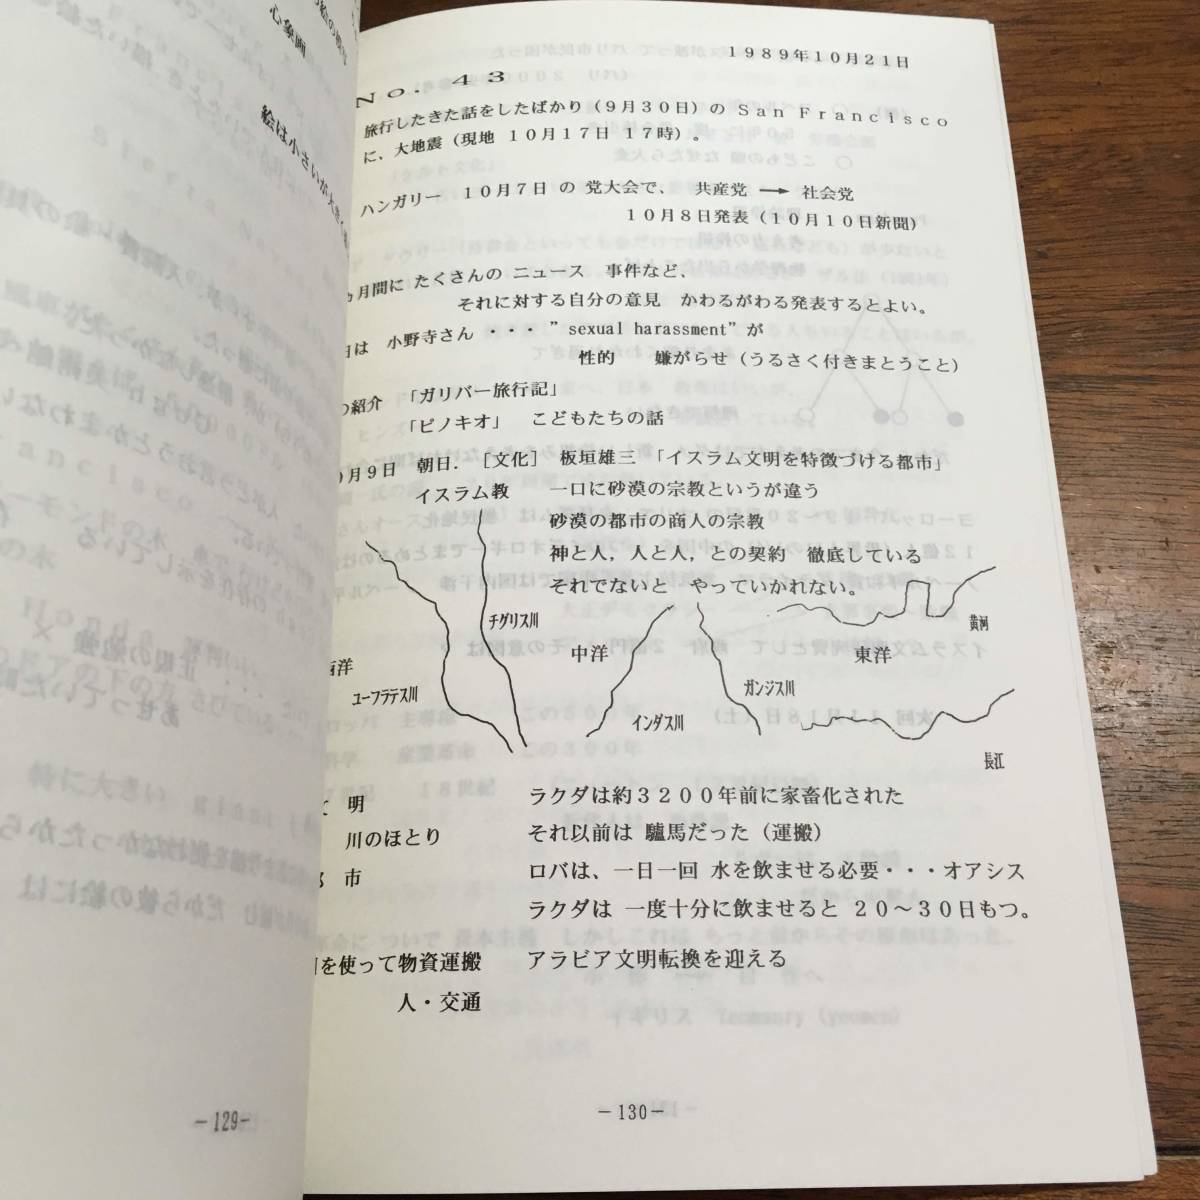 心象画
絵は小さいが大き
-129-
1989年10月21日
No. 43
旅行したきた話をしたばかり(9月30日)の San Francisco
に、大地震(現地 10月17日 17時)。
ハンガリー 10月7日 の 党大会で、 共産党 → 社会党
10月8日発表(10月10日新聞)
月間に たくさんの ニュース 事件など、
それに対する自分の意見 かわるがわる発表するとよい。
日は 小野寺さん ・・・ ” sexual harassment”が
性的 嫌がらせ(うるさく付きまとうこと)
の紹介 「ガリバー旅行記」
「ピノキオ」 こどもたちの話
月9日 朝日. [文化] 板垣雄三 「イスラム文明を特徴づける都市」
イスラム教 一口に砂漠の宗教というが違う
砂漠の都市の商人の宗教
神と人,人と人,との契約 徹底している
それでないと やっていかれない。
チグリス川
黄河
中洋
東洋
西洋
ユーフラテス川
ガンジス川
インダス川
長江
明 ラクダは約3200年前に家畜化された
川のほとり それ以前は 驢馬だった(運搬)
市 ロバは、一日一回 水を飲ませる必要・・・オアシス
ラクダは 一度十分に飲ませると 20～30日もつ。
を使って物資運搬 アラビア文明転換を迎える
人・交通
-130-